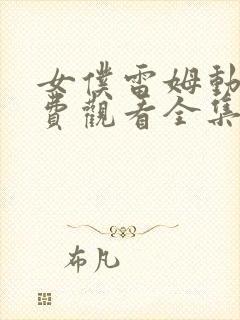 女僕雷姆動
費觀看全集
布凡